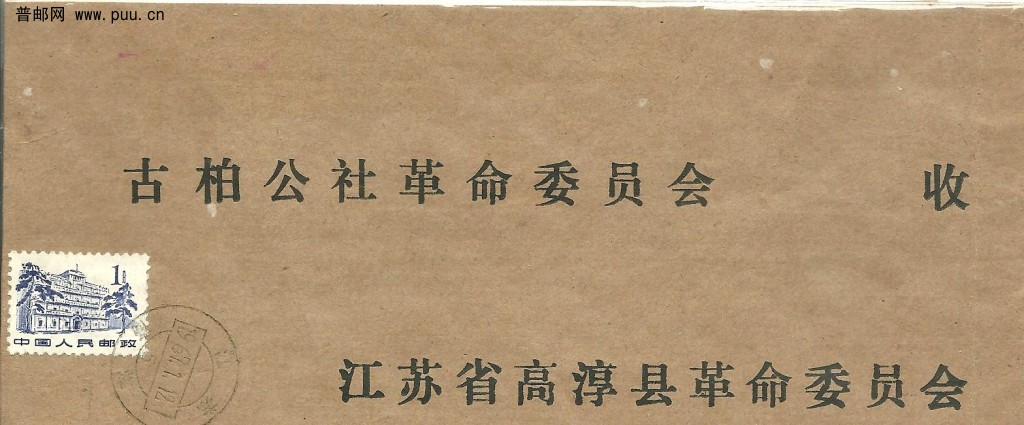 普邮网 www.puu.cn
古柏公社革命委员会 收
1
中国人民邮政
江苏省高淳县革命委员会